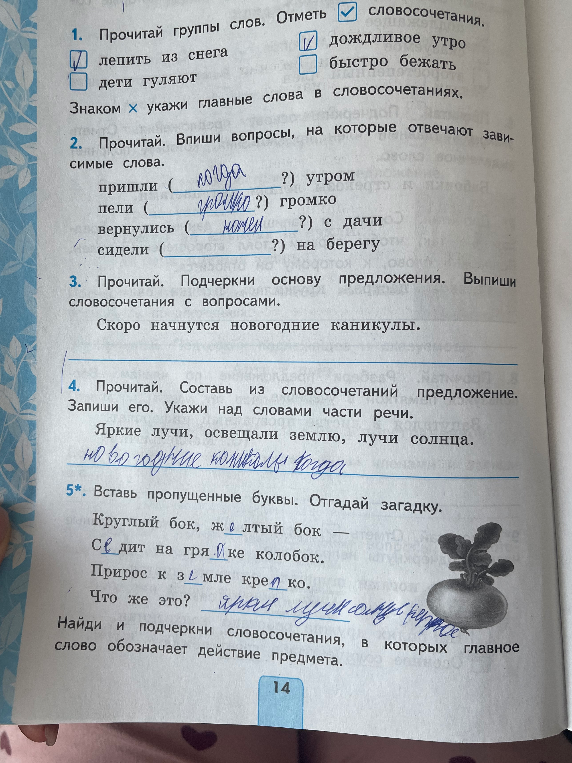 1. Прочитай группы слов. Отметь ☑ словосочетания.
☑ лепить из снега ☑ дождливое утро
☐ дети гуляют ☐ быстро бежать
Знаком × укажи главные слова в словосочетаниях.
2. Прочитай. Впиши вопросы, на которые отвечают зави-
симые слова.
пришли ( когда ?) утром
пели ( ?) громко
вернулись ( ?) с дачи
сидели ( ?) на берегу
3. Прочитай. Подчеркни основу предложения. Выпиши
словосочетания с вопросами.
Скоро начнутся новогодние каникулы.
4. Прочитай. Составь из словосочетаний предложение.
Запиши его. Укажи над словами части речи.
Яркие лучи, освещали землю, лучи солнца.
новогодние когда
5*. Вставь пропущенные буквы. Отгадай загадку.
Круглый бок, ж лтый бок —
С е дит на гря ке колобок.
Прирос к з е мле кре п ко.
Что же это?
Найди и подчеркни словосочетания, в которых главное
слово обозначает действие предмета.
14